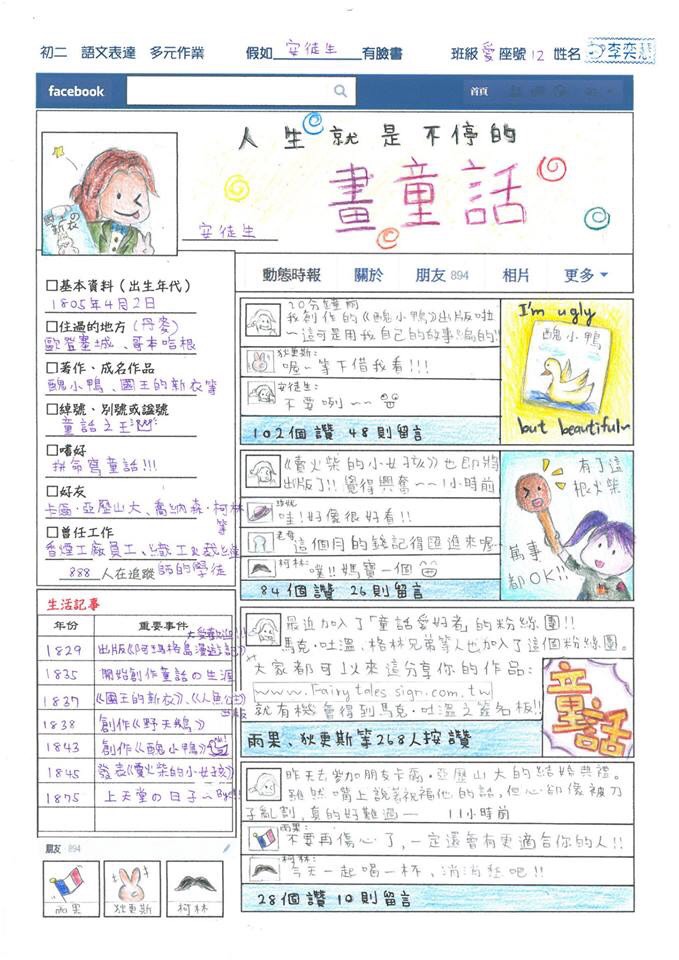 初二 語文表達 多元作業 假如 安徒生 有臉書 班級 愛 座號 12 姓名 李奕慧
facebook 首頁
人生就是不停的
畫童話
國王の新衣
安徒生
動態時報 關於 朋友 894 相片 更多
□基本資料（出生年代）
1805年4月2日
□住過的地方(丹麥)
歐登塞城、哥本哈根
□著作、成名作品
醜小鴨、國王的新衣等
□綽號、別號或諡號
童話之王
□嗜好
拼命寫童話!!!
□好友
卡爾·亞歷山大、喬納森·柯林等
□曾任工作
香煙工廠員工、織工及裁縫師的學徒
888 人在追蹤
生活記事
年份 重要事件
1829 出版《阿瑪格島漫遊記》大受歡迎!!
1835 開始創作童話の生涯
1837 《國王的新衣》、《人魚公主》出版
1838 創作《野天鵝》
1843 創作《醜小鴨》
1845 發表《賣火柴的小女孩》
1875 上天堂の日子~Bye!!
朋友 894
雨果 狄更斯 柯林
20分鐘前
我創作的《醜小鴨》出版啦
~這可是用我自己的故事編的!!
狄更斯:
喔~等下借我看!!!
安徒生:
不要咧~~
102個讚 48則留言
I'm ugly
醜小鴨
but beautiful~
《賣火柴的小女孩》也即將
出版了!!覺得興奮~~1小時前
哇!好像很好看!!
這個月的錢記得匯進來喔~
柯林:
噗!!媽寶一個
84個讚 26則留言
有了這
根火柴
萬事
都OK!!
最近加入了「童話愛好者」的粉絲團!!
馬克·吐溫、格林兄弟等人也加入了這個粉絲團。
大家都可以來這分享你的作品:
www.Fairytales sign.com.tw
就有機會得到馬克·吐溫之簽名板!!
雨果、狄更斯等268人按讚
童話
昨天去參加朋友卡爾·亞歷山大的結婚典禮。
雖然嘴上說著祝福他的話，但心卻像被刀
子亂割，真的好難過— 11小時前
雨果:
不要再傷心了，一定還會有更適合你的人!!
柯林:
今天一起喝一杯、消消愁吧!!
28個讚 10則留言